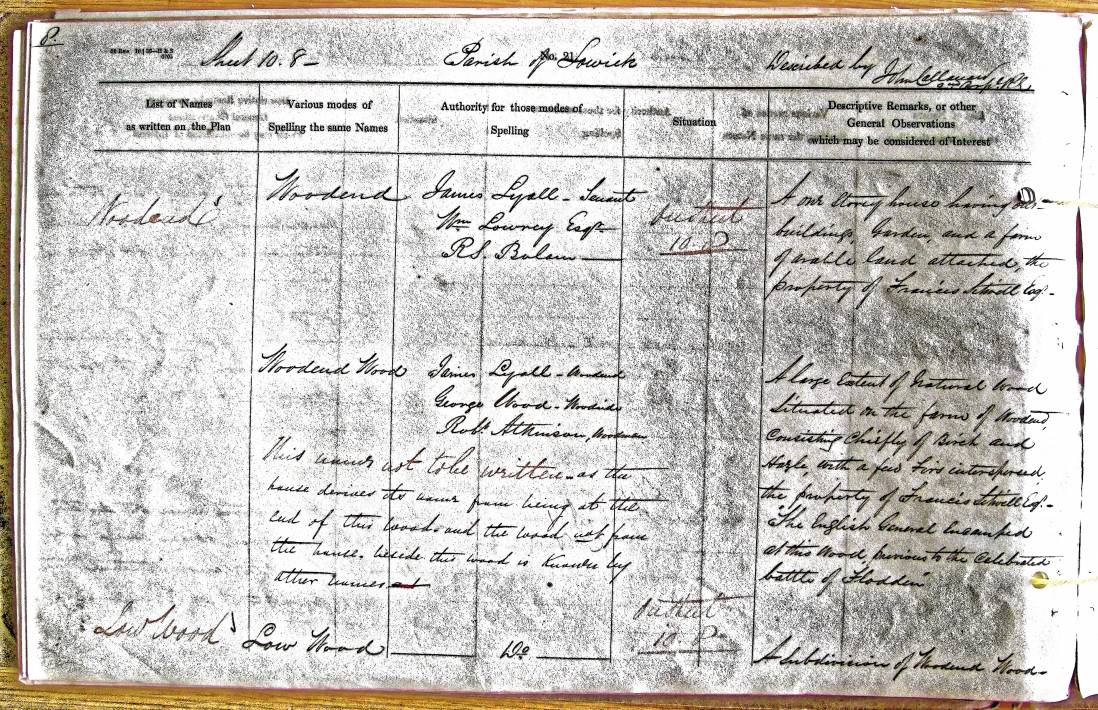 8.
Sheet 10.8 - Parish of Lowick Described by John
No. 21
List of Names
as written on the Plan
Various modes of
Spelling the same Names
Authority for those modes of
Spelling
Situation
Descriptive Remarks, or other
General Observations
which may be considered of Interest
Woodend
Woodend
James Lyall - Tenant
Wm Lowrey Esqr
R.S. Bolam
10.8
A one storey house having out-
buildings, Garden, and a farm
of arable land attached, the
property of Francis Sitwell Esq. -
Woodend Wood
James Lyall - Woodend
George Wood - Woodside
Robt. Atkinson, Woodman
This name not to be written - as the
house derives its name from being at the
end of this wood - and the wood not from
the house. beside this wood is Known by
other names
A large Extent of Natural Wood
Situated on the farm of Woodend,
Consisting Chiefly of Birch and
Hazle with a few Firs interspersed,
the property of Francis Sitwell Esq. -
"The English General encamped
at this Wood, previous to the Celebrated
battle of Flodden"
Low Wood
Low Wood
Do
10.8
A subdivision of Woodend Wood -